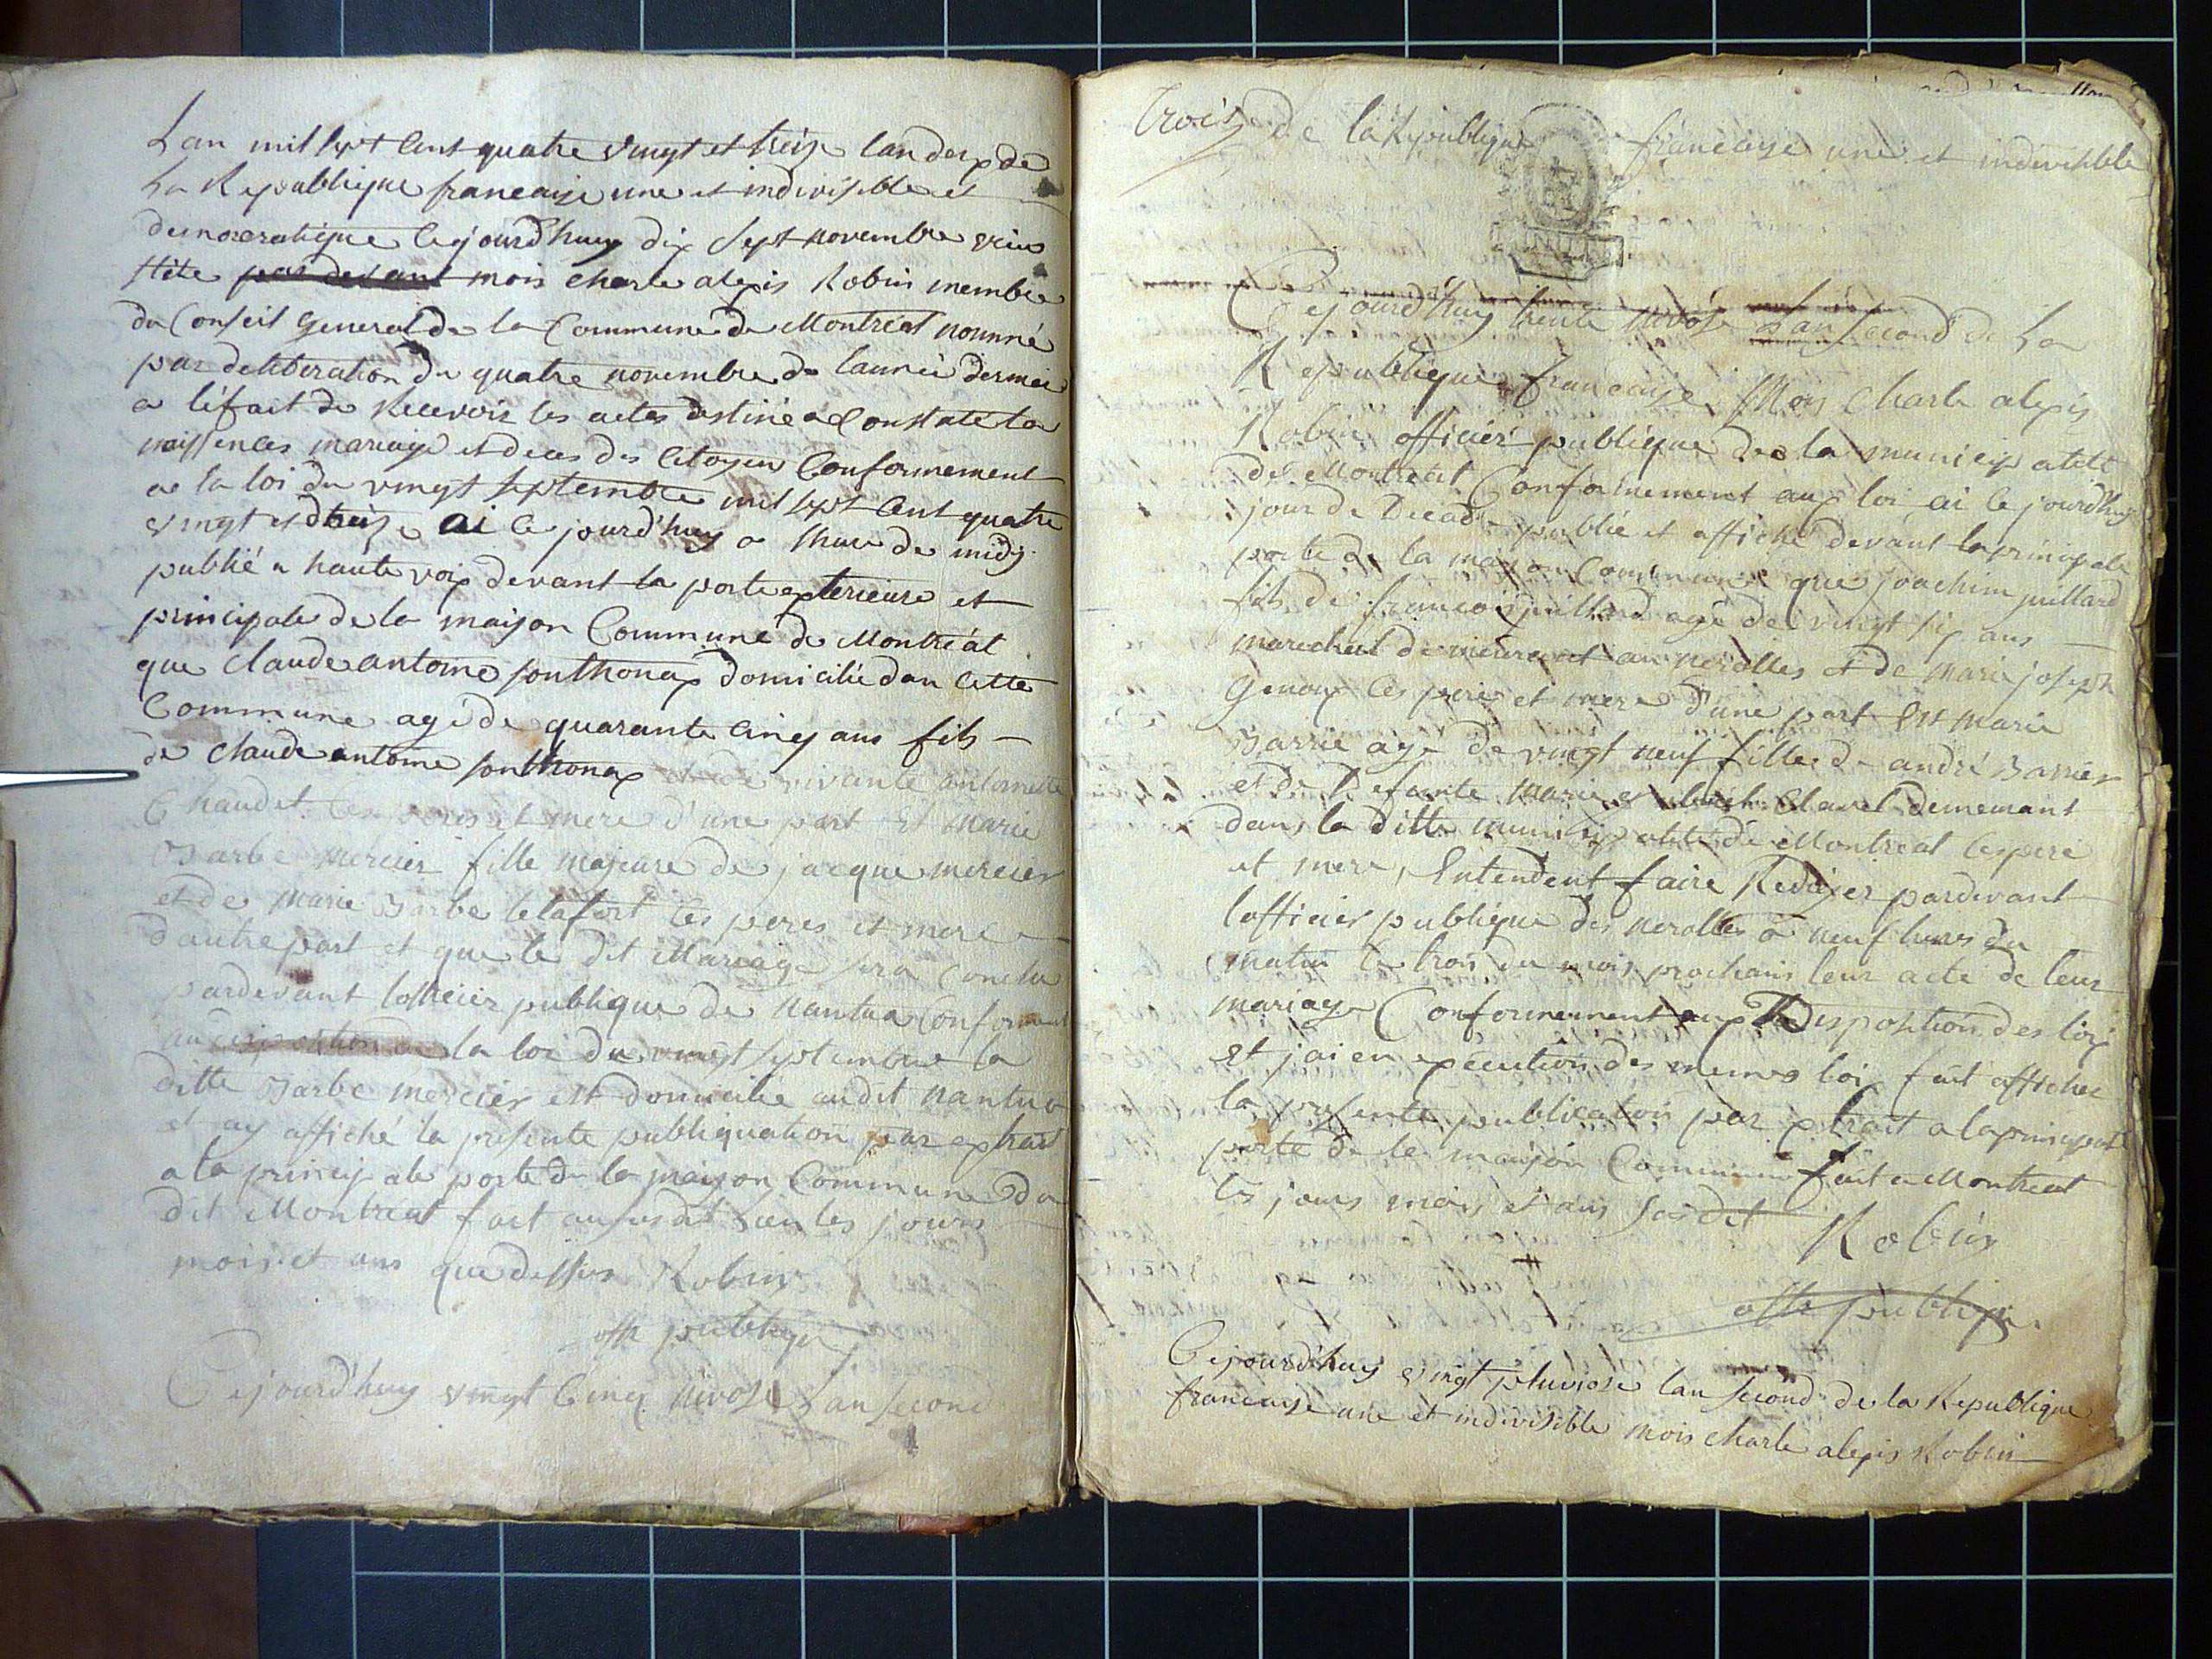 Lan mil sept Cent quatre vingt et treize lan deux de
La Republique francaise une et indivisible et
democratique Cejourd'huy dix sept novembre vieux
stile par devant mois Charle alexis Robin membre
du Conseil General de la Commune de Montréal nommé
par deliberation du quatre novembre de lannée derniere
a léfait de Recevoir les actes destiné a Constaté la
naissences mariage et deces des Citoyen Conformement
a la loi du vingt septembre mil sept Cent quatre
vingt et treize ai Ce jourd'huy a lhure de midy
publié a haute voix devant la porte exterieure et
principale de la maison Commune de Montréal
que Claude antoine sonthonax domicilié dan Cette
Commune agé de quarante Cinq ans fils
de Claude antoine sonthonax vivante antoinette
Chaudet Ces peres et mere d'une part Et Marie
Barbe Mercier fille majeure de jacque mercier
et de Marie Barbe Ces peres et mere
d'autre part et que le dit Mariage sera Conclu
pardevant lofficier publique de nantua Conforment
au disposition de la loi du vingt septembre la
ditte Barbe Mercier est domicilie audit nantua
et ay affiché la presente publiquation par extrait
a la principale porte de la maison Commune du
dit Montréal fait au susdit lieu les jours
mois et ans que dessus Robin
offr publique
Cejourd'huy vingt Cinq nivose Lan second
de la Republique francaise une et indivisible
Cejourd'huy trente nivose Lan second de La
Republique francaise Mois Charle alexis
Robin officier publique de la municipalité
de Montréal Conformement aux loi ai Ce jourd'huy
jour de Decade publié et affiché devant la principale
porte de la maison Commune que joachim juillard
fils de francois juillard agé de vingt six ans
marechal demeurant au nerolles et de Marie joseph
Genoux Ces pere et mere d'une part Et Marie
Barrie agé de vingt neuf fille de andré Barrier
et de Defainte Marie Clavel demeurant
dans la ditte municipalité de Montréal Ces pere
et mere, Entendent faire Rediger pardevant
lofficier publique des nerolles a neuf hures du
matin le trois du mois prochain leur acte de leur
mariage Conformement aux Disposition des loix
et jai en execution des memes loix fait afficher
la presente publication par extrait a la principale
porte de la maison Commune fait a Montreal
les jours mois et ans susdit Robin
offr publique
Cejourd'huy vingt pluviose lan second de la Republique
francaise une et indivisible mois Charle alexis Robin